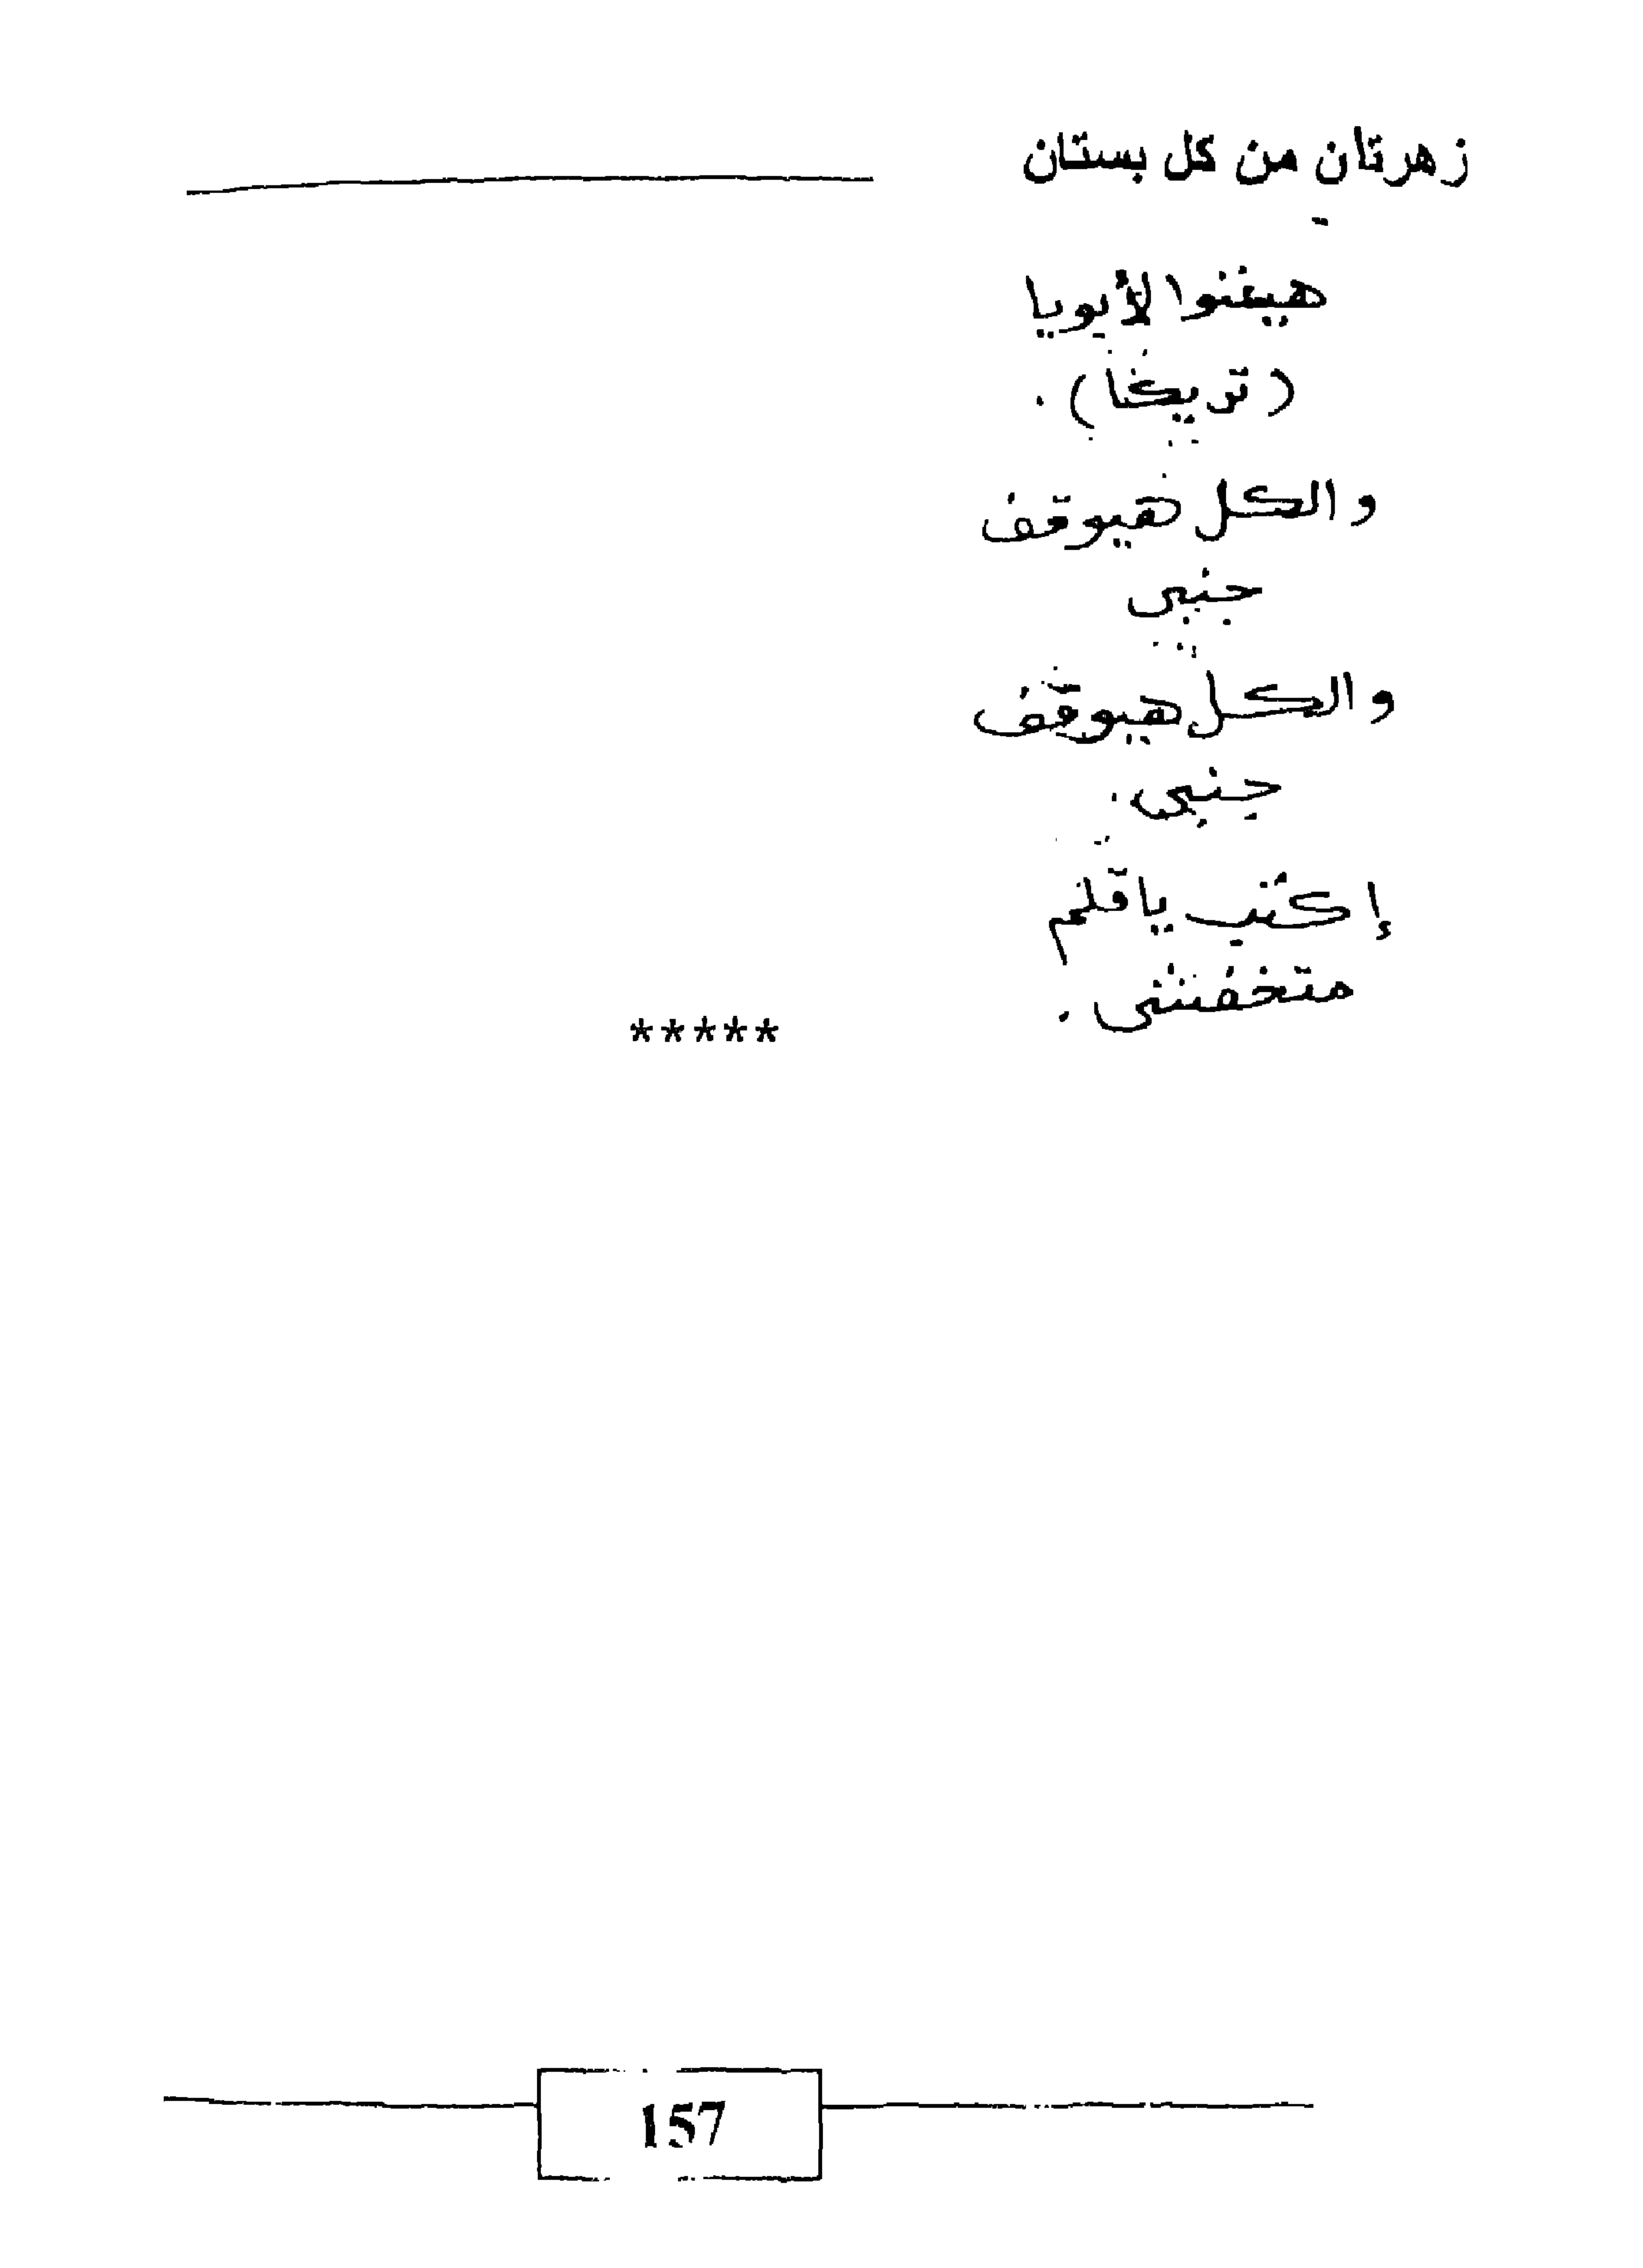 زهرتان من كل بستان
هيغنوا لأبويا
( تريكا ) .
والكل هيوقف
جنبى
والكل هيوقف
جنبى .
إكتب ياقلم
متخفشى .
*****
157